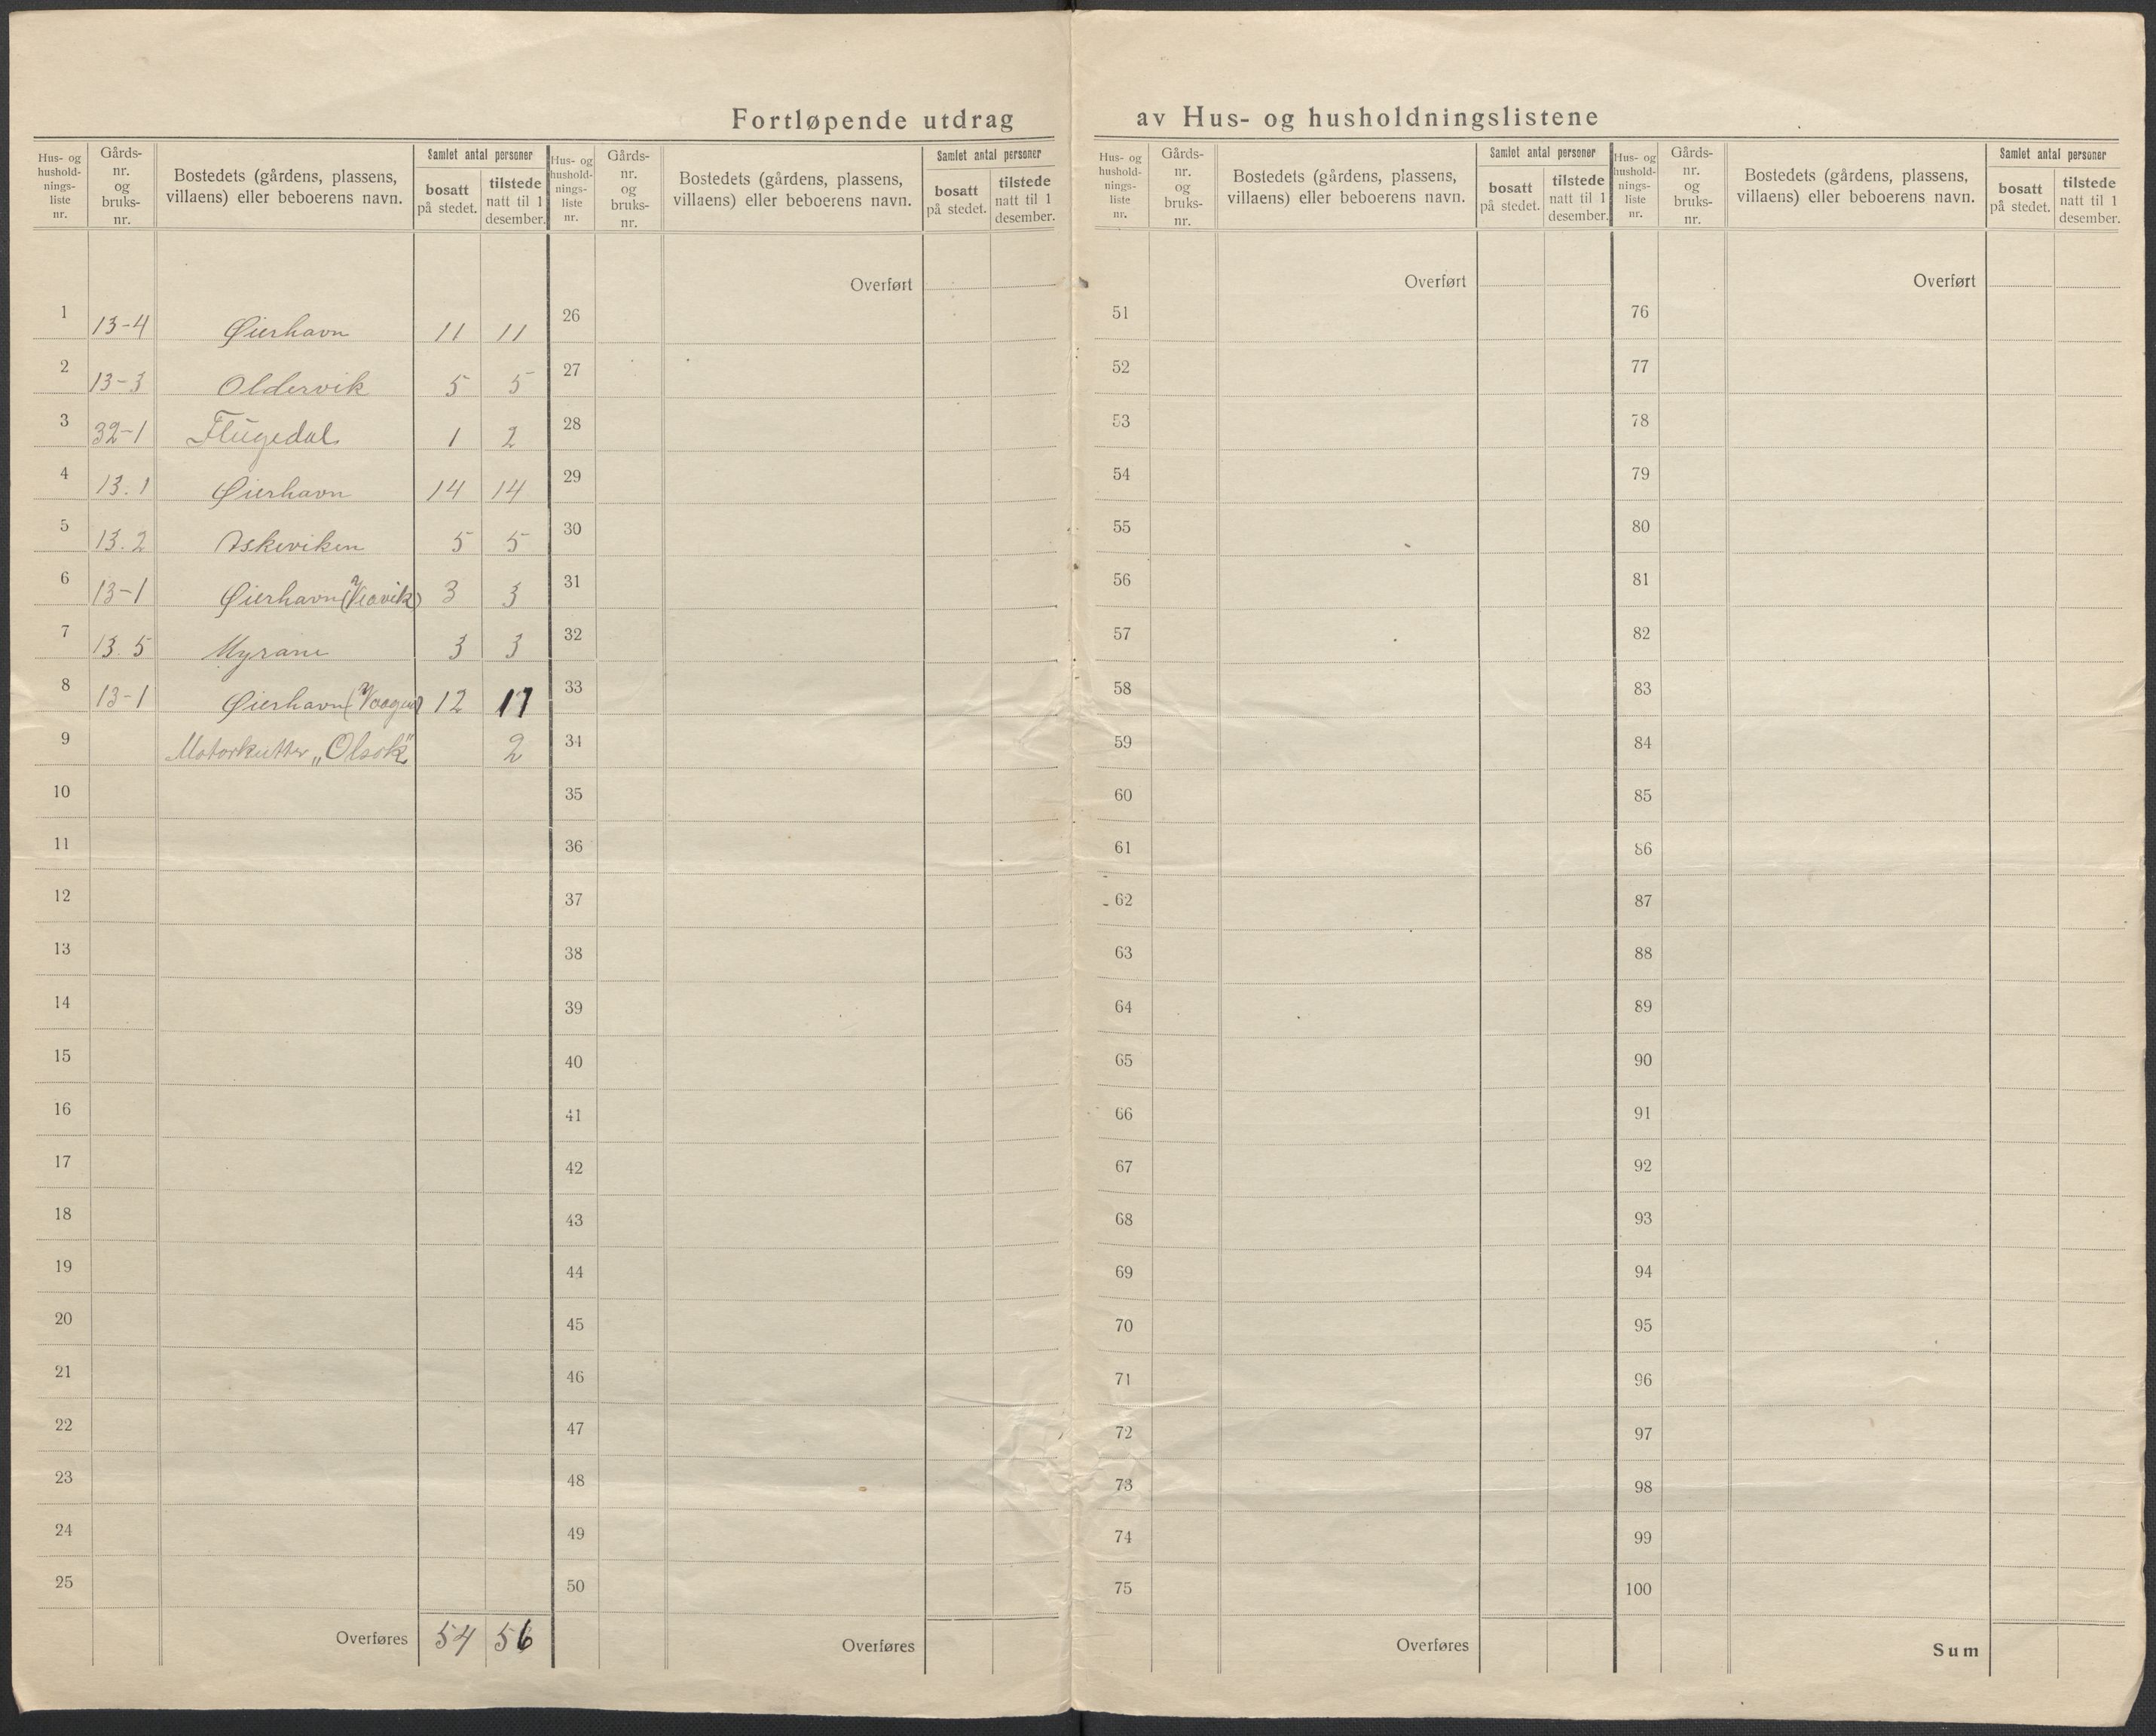 Fortløpende utdrag av Hus- og husholdningslistene
Hus- og hushold-nings-liste nr. Gårds-nr. og bruks-nr. Bostedets (gårdens, plassens, villaens) eller beboerens navn. Samlet antal personer bosatt på stedet. tilstede natt til 1 desember.
1 13-4 Øierhavn 11 11
2 13-3 Oldervik 5 5
3 32-1 Flugedal 1 2
4 13.1 Øierhavn 14 14
5 13.2 Askeviken 5 5
6 13-1 Øierhavn 3 3
7 13.5 Myrane 3 3
8 13-1 Øierhavn 12
9 Motorkutter „Olsok" 2
10
11
12
13
14
15
16
17
18
19
20
21
22
23
24
25
Overføres 54 56
Hus- og hushold-nings-liste nr. Gårds-nr. og bruks-nr. Bostedets (gårdens, plassens, villaens) eller beboerens navn. Samlet antal personer bosatt på stedet. tilstede natt til 1 desember.
Overført
26
27
28
29
30
31
32
33
34
35
36
37
38
39
40
41
42
43
44
45
46
47
48
49
50
Overføres
Hus- og hushold-nings-liste nr. Gårds-nr. og bruks-nr. Bostedets (gårdens, plassens, villaens) eller beboerens navn. Samlet antal personer bosatt på stedet. tilstede natt til 1 desember.
Overført
51
52
53
54
55
56
57
58
59
60
61
62
63
64
65
66
67
68
69
70
71
72
73
74
75
Overføres
Hus- og hushold-nings-liste nr. Gårds-nr. og bruks-nr. Bostedets (gårdens, plassens, villaens) eller beboerens navn. Samlet antal personer bosatt på stedet. tilstede natt til 1 desember.
Overført
76
77
78
79
80
81
82
83
84
85
86
87
88
89
90
91
92
93
94
95
96
97
98
99
100
Sum